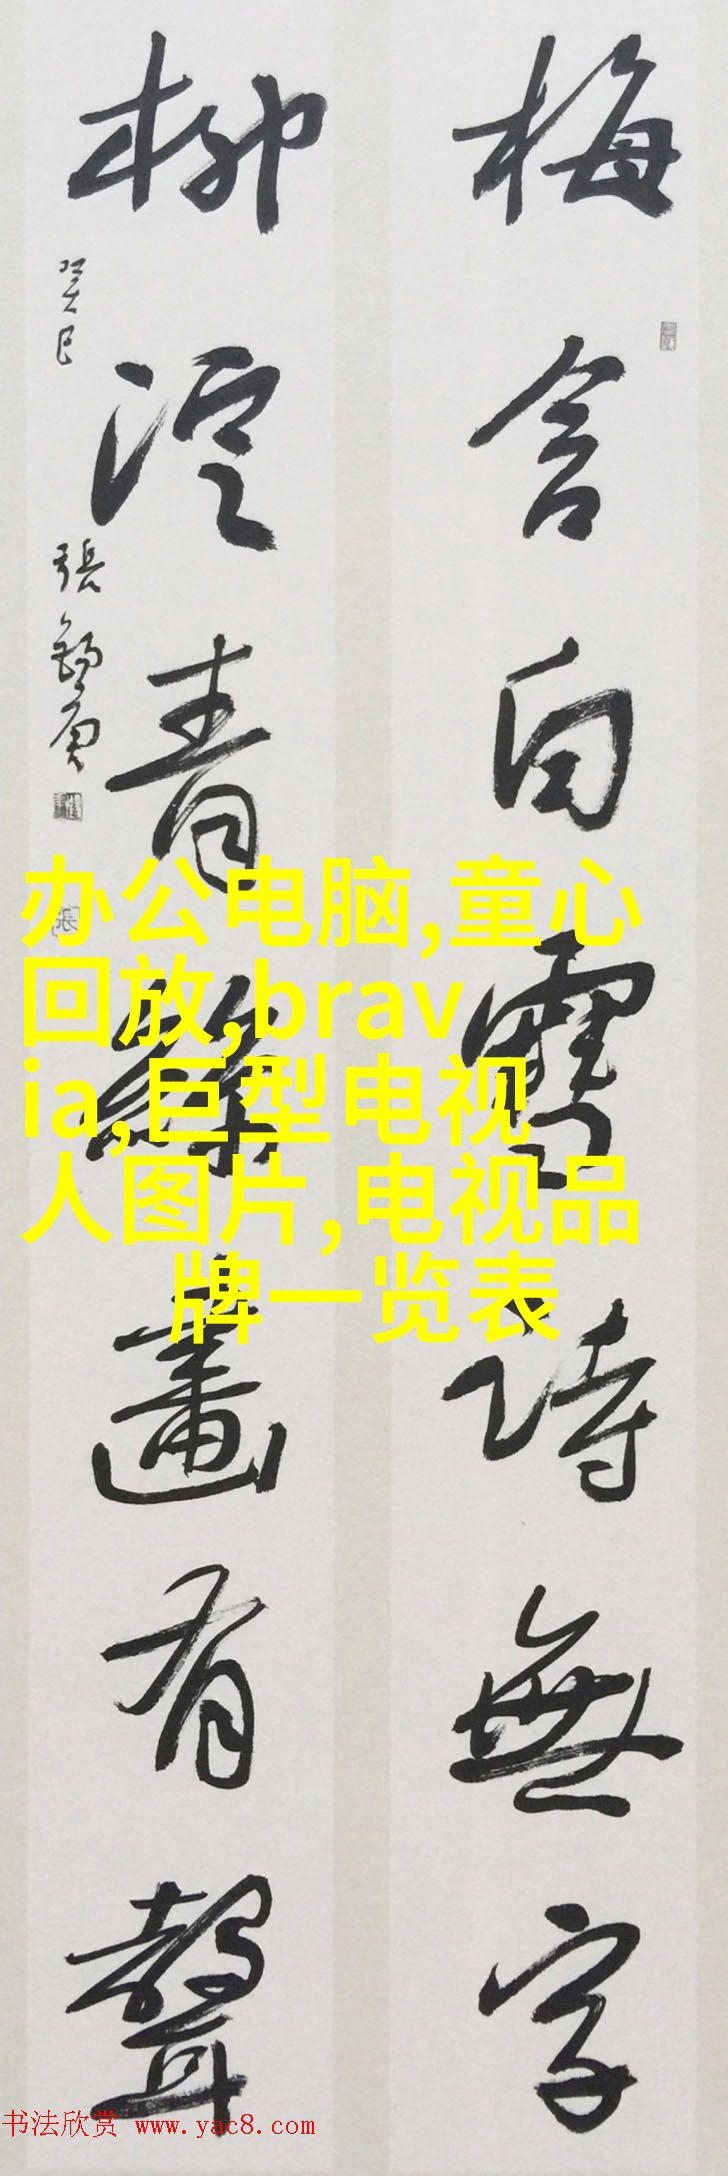 梅含白雪詩無字
柳淀青絲畫有聲
癸巳
張錦廣
办公电脑,童心
回放,brav
ia,巨型电视
人图片,电视品
牌一览表
书法欣赏 www.yac8.com